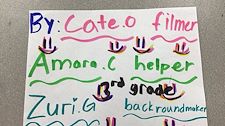 By: Cate.O filmer
Amara.C helper
3rd grade
Zuri.G backroundmaker